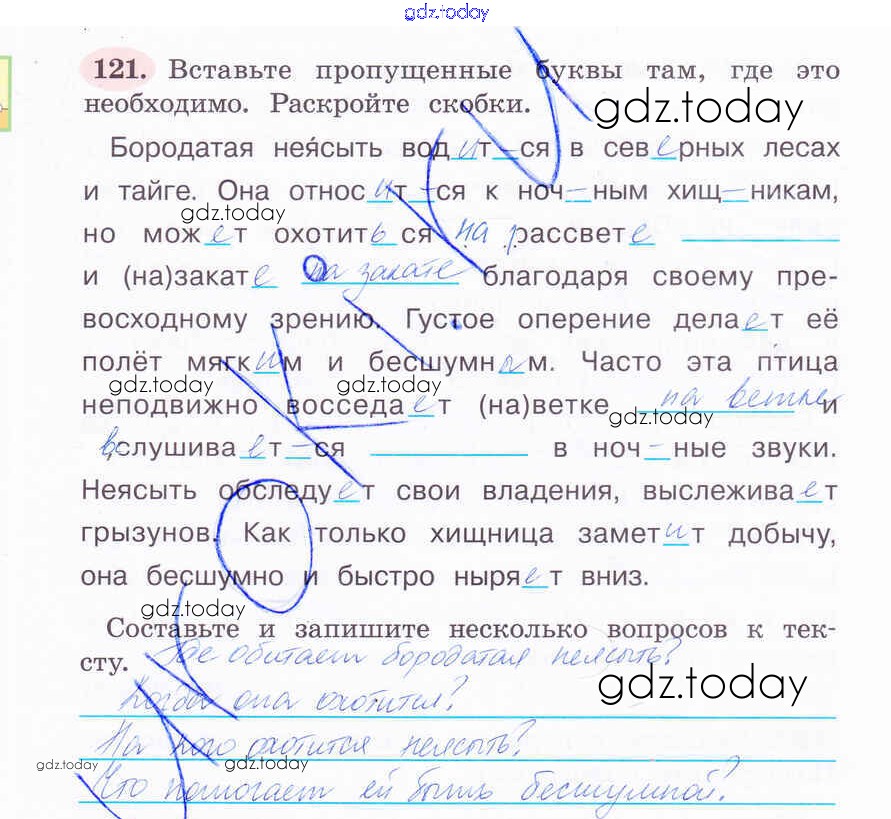 gdz.today
121. Вставьте пропущенные буквы там, где это
необходимо. Раскройте скобки.
gdz.today
Бородатая нея́сыть водит–ся в северных лесах
и тайге. Она относит–ся к ноч–ным хищ–никам,
gdz.today
но может охотиться на рассвете
и (на)закате на закате благодаря своему пре-
восходному зрению. Густое оперение делает её
полёт мягким и бесшумным. Часто эта птица
gdz.today gdz.today
неподвижно восседает (на)ветке на ветке и
gdz.today
вслушивает–ся в ноч–ные звуки.
Неясыть обследует свои владения, выслеживает
грызунов. Как только хищница заметит добычу,
она бесшумно и быстро ныряет вниз.
gdz.today
Составьте и запишите несколько вопросов к тек-
сту. Где обитает бородатая неясыть?
gdz.today
Когда она охотится?
На кого охотится неясыть?
gdz.today gdz.today
Что помогает ей быть бесшумной?